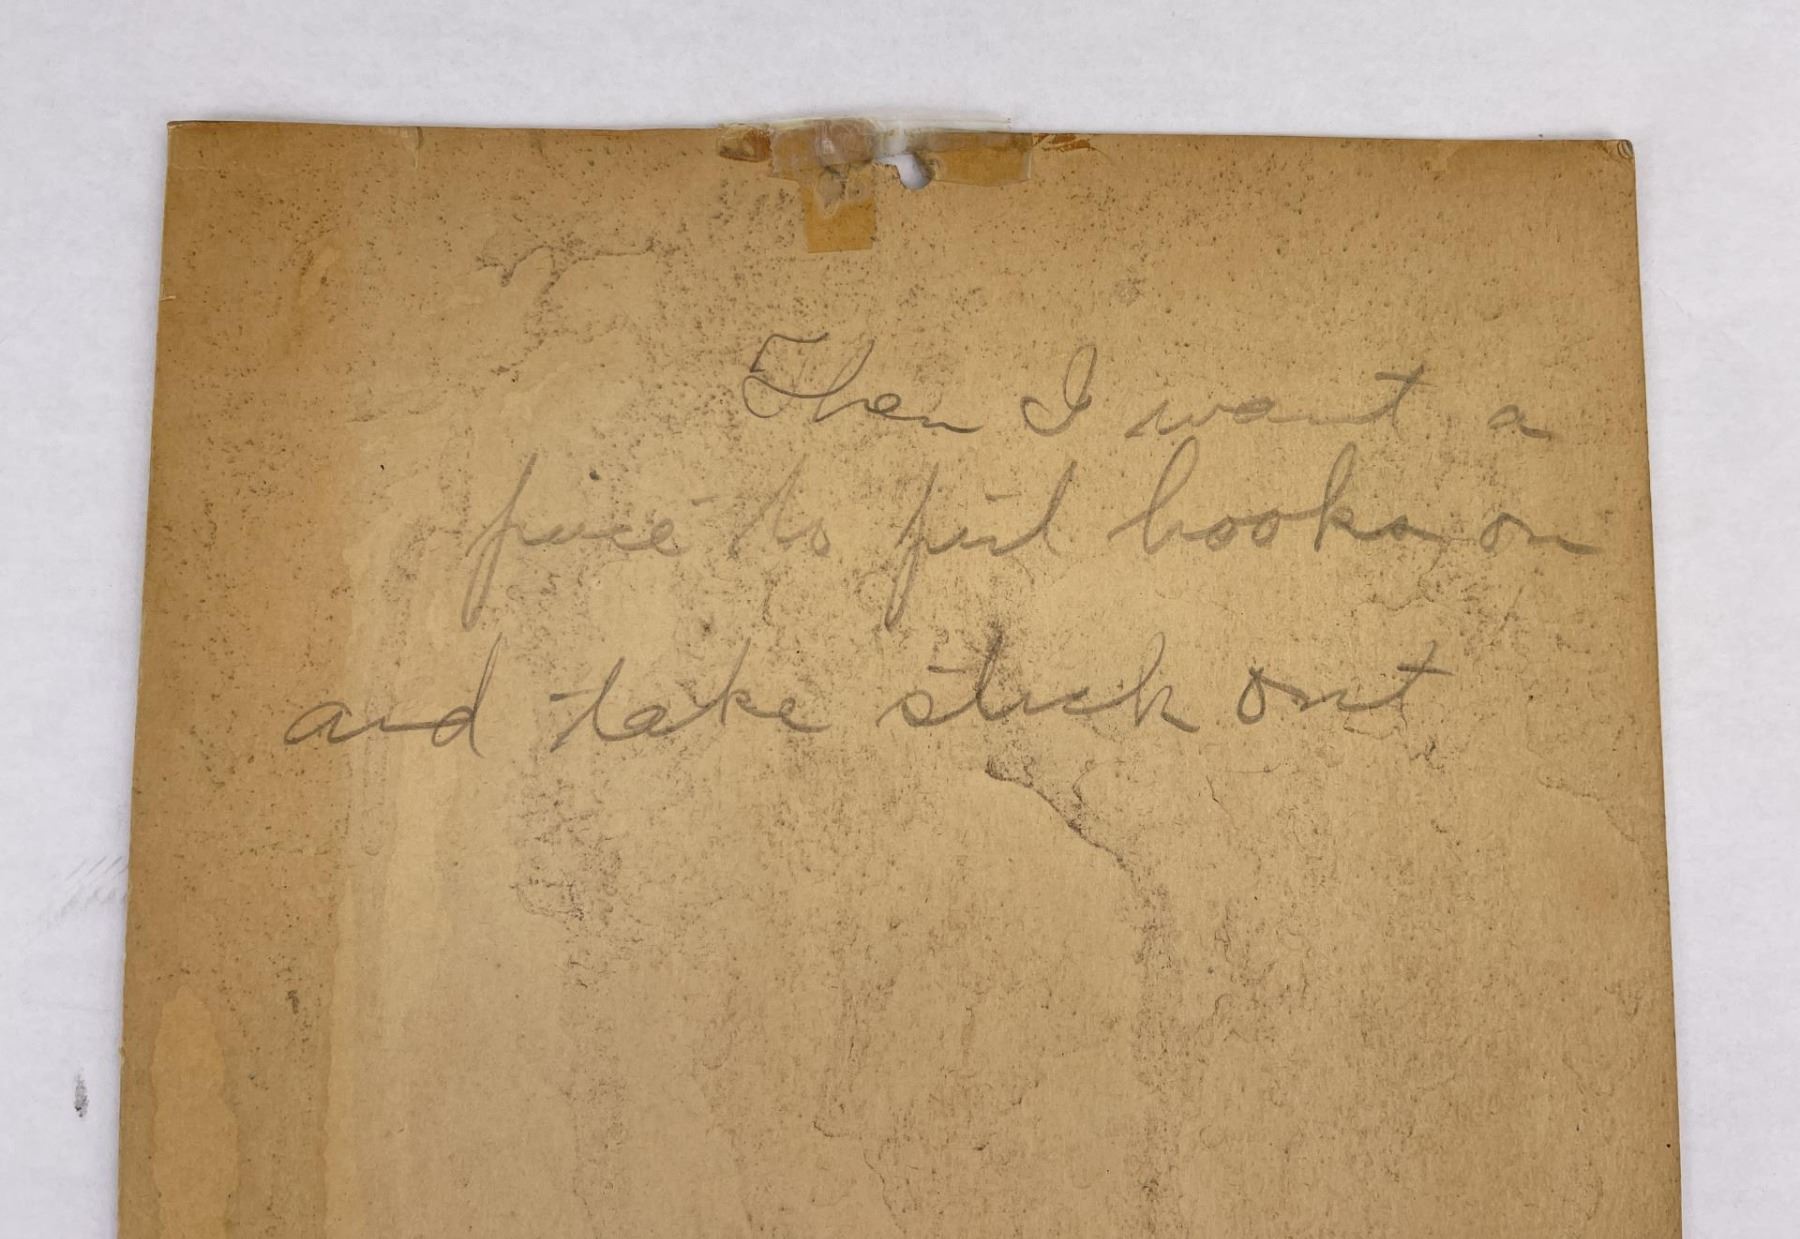 Then I want a
piece to put books on
and take stick out